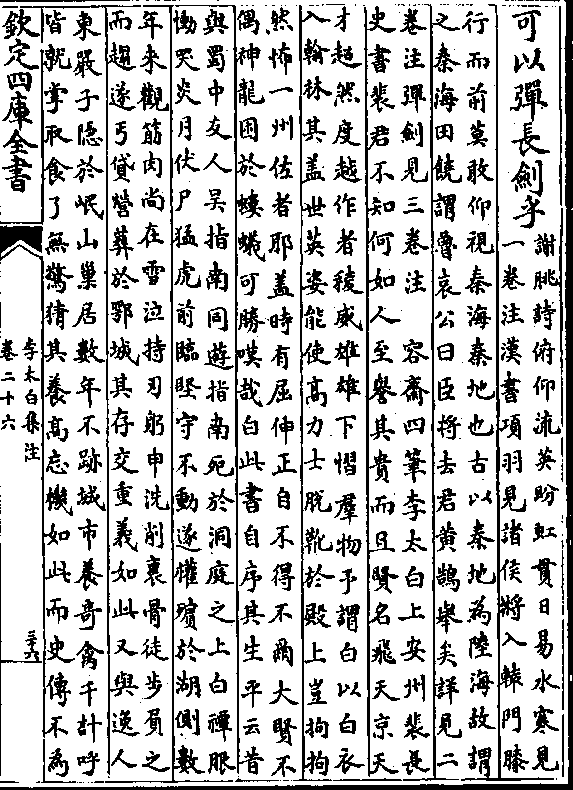 可以彈長劍乎
謝朓詩俯仰流英盼虹貫日易水寒見
一卷注漢書項羽見諸侯將入轅門膝
行而前莫敢仰視秦海秦地也古以秦地為陸海故謂
之秦海田饒謂魯哀公曰臣將去君黃鵠舉矣詳見二
卷注彈劍見三卷注　容齋四筆李太白上安州裴長
史書裴君不知何如人至譽其貴而且賢名飛天京天
才超然度越作者稜威雄雄下慴羣物予謂白以白衣
入翰林其蓋世英姿能使高力士脫靴於殿上豈拘拘
然怖一州佐者耶蓋時有屈伸正自不得不爾大賢不
偶神龍困於螻蟻可勝嘆哉白此書自序其生平云昔
與蜀中友人吳指南同遊指南死於洞庭之上白禫服
慟哭炎月伏尸猛虎前臨堅守不動遂權殯於湖側數
年來觀筋肉尚在雪泣持刃躬申洗削裹骨徒步負之
而趨遂丐貸營葬於鄂城其存交重義如此又與逸人
東嚴子隱於岷山巢居數年不跡城市養奇禽千計呼
皆就掌取食了無驚猜其養高忘機如此而史傳不為
欽定四庫全書
李太白集注
卷二十六
三六